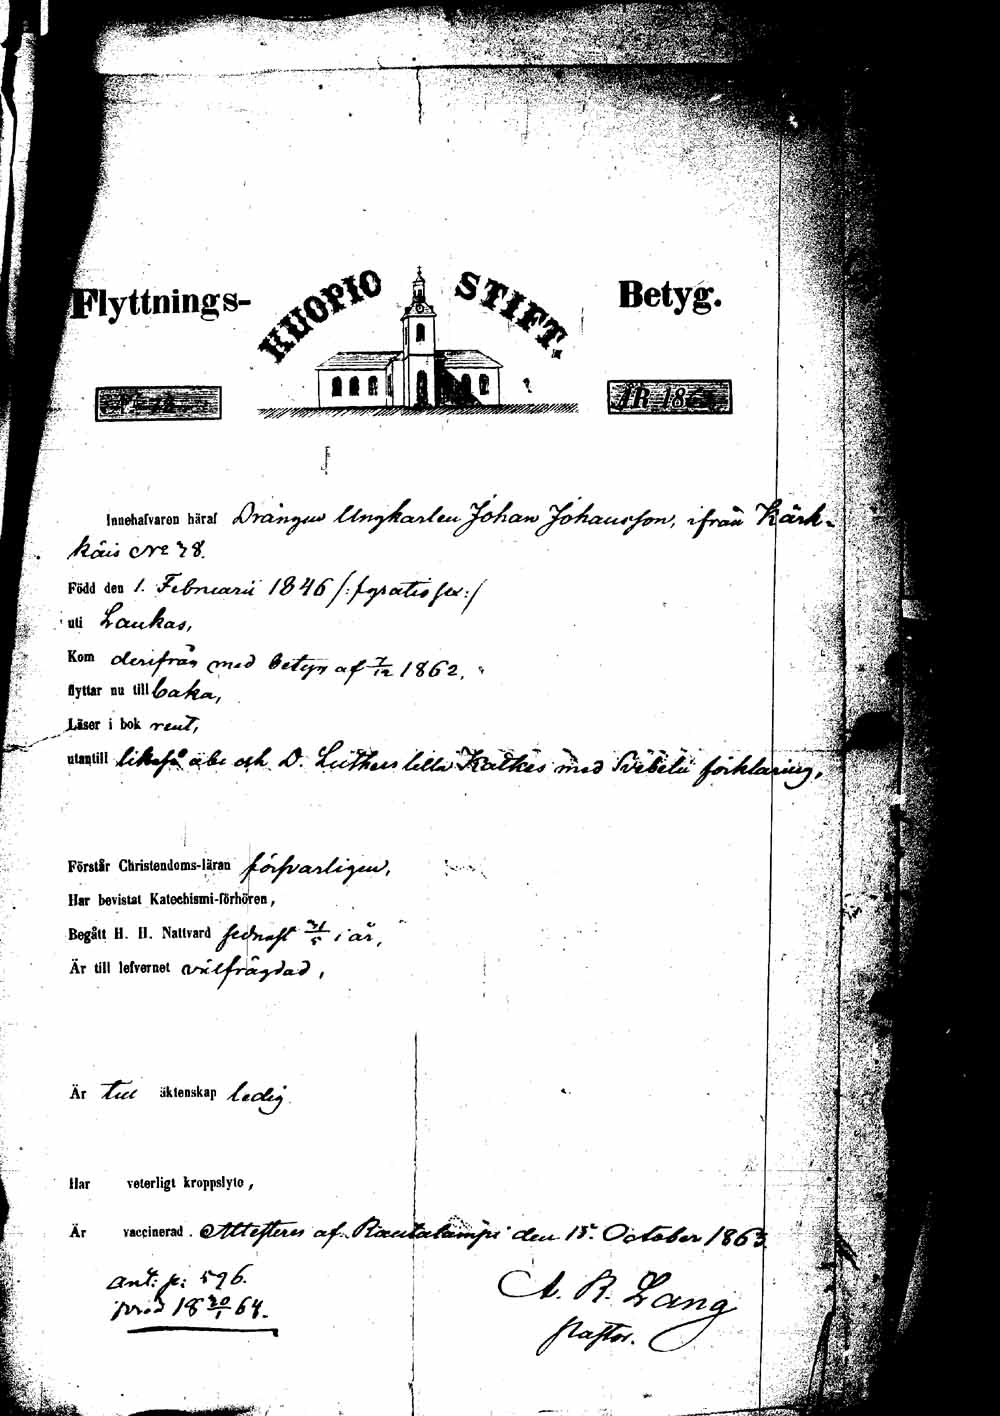 Flyttnings- KUOPIO STIFT. Betyg.
ÅR 186
Innehafvaren häraf Drängen Ungkarlen Johan Johansson, ifrån Kärk-
käis No 78.
Född den 1. Februarii 1846 /: :/
uti Laukas,
Kom derifrån med betyg af 7/12 1862,
flyttar nu till baka,
Läser i bok rent,
utantill likaså abc och D. Luthers lilla Katkes med Svebelii förklaring,
Förstår Christendoms-läran försvarligen,
Har bevistat Katechismi-förhören,
Begått H. H. Nattvard sednast 31/5 i år,
Är till lefvernet välfrägdad,
Är till äktenskap ledig
Har veterligt kroppslyte,
Är vaccinerad. Attesteras af Rautalampi den 15. October 1863.
Ant: p: 596.
18 20/1 64.
A. R. Lang
Pastor.